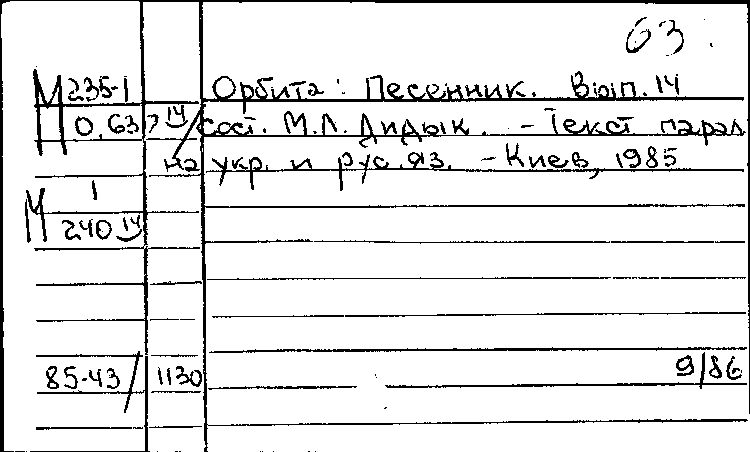 63.
М 235-1 Орбита: Песенник. Вып. 14
0.637 14 /сост. М.Л. Дидык. - Текст парал
на укр. и рус. яз. - Киев, 1985
М 1
240 14
85-43/ 1130 9/86